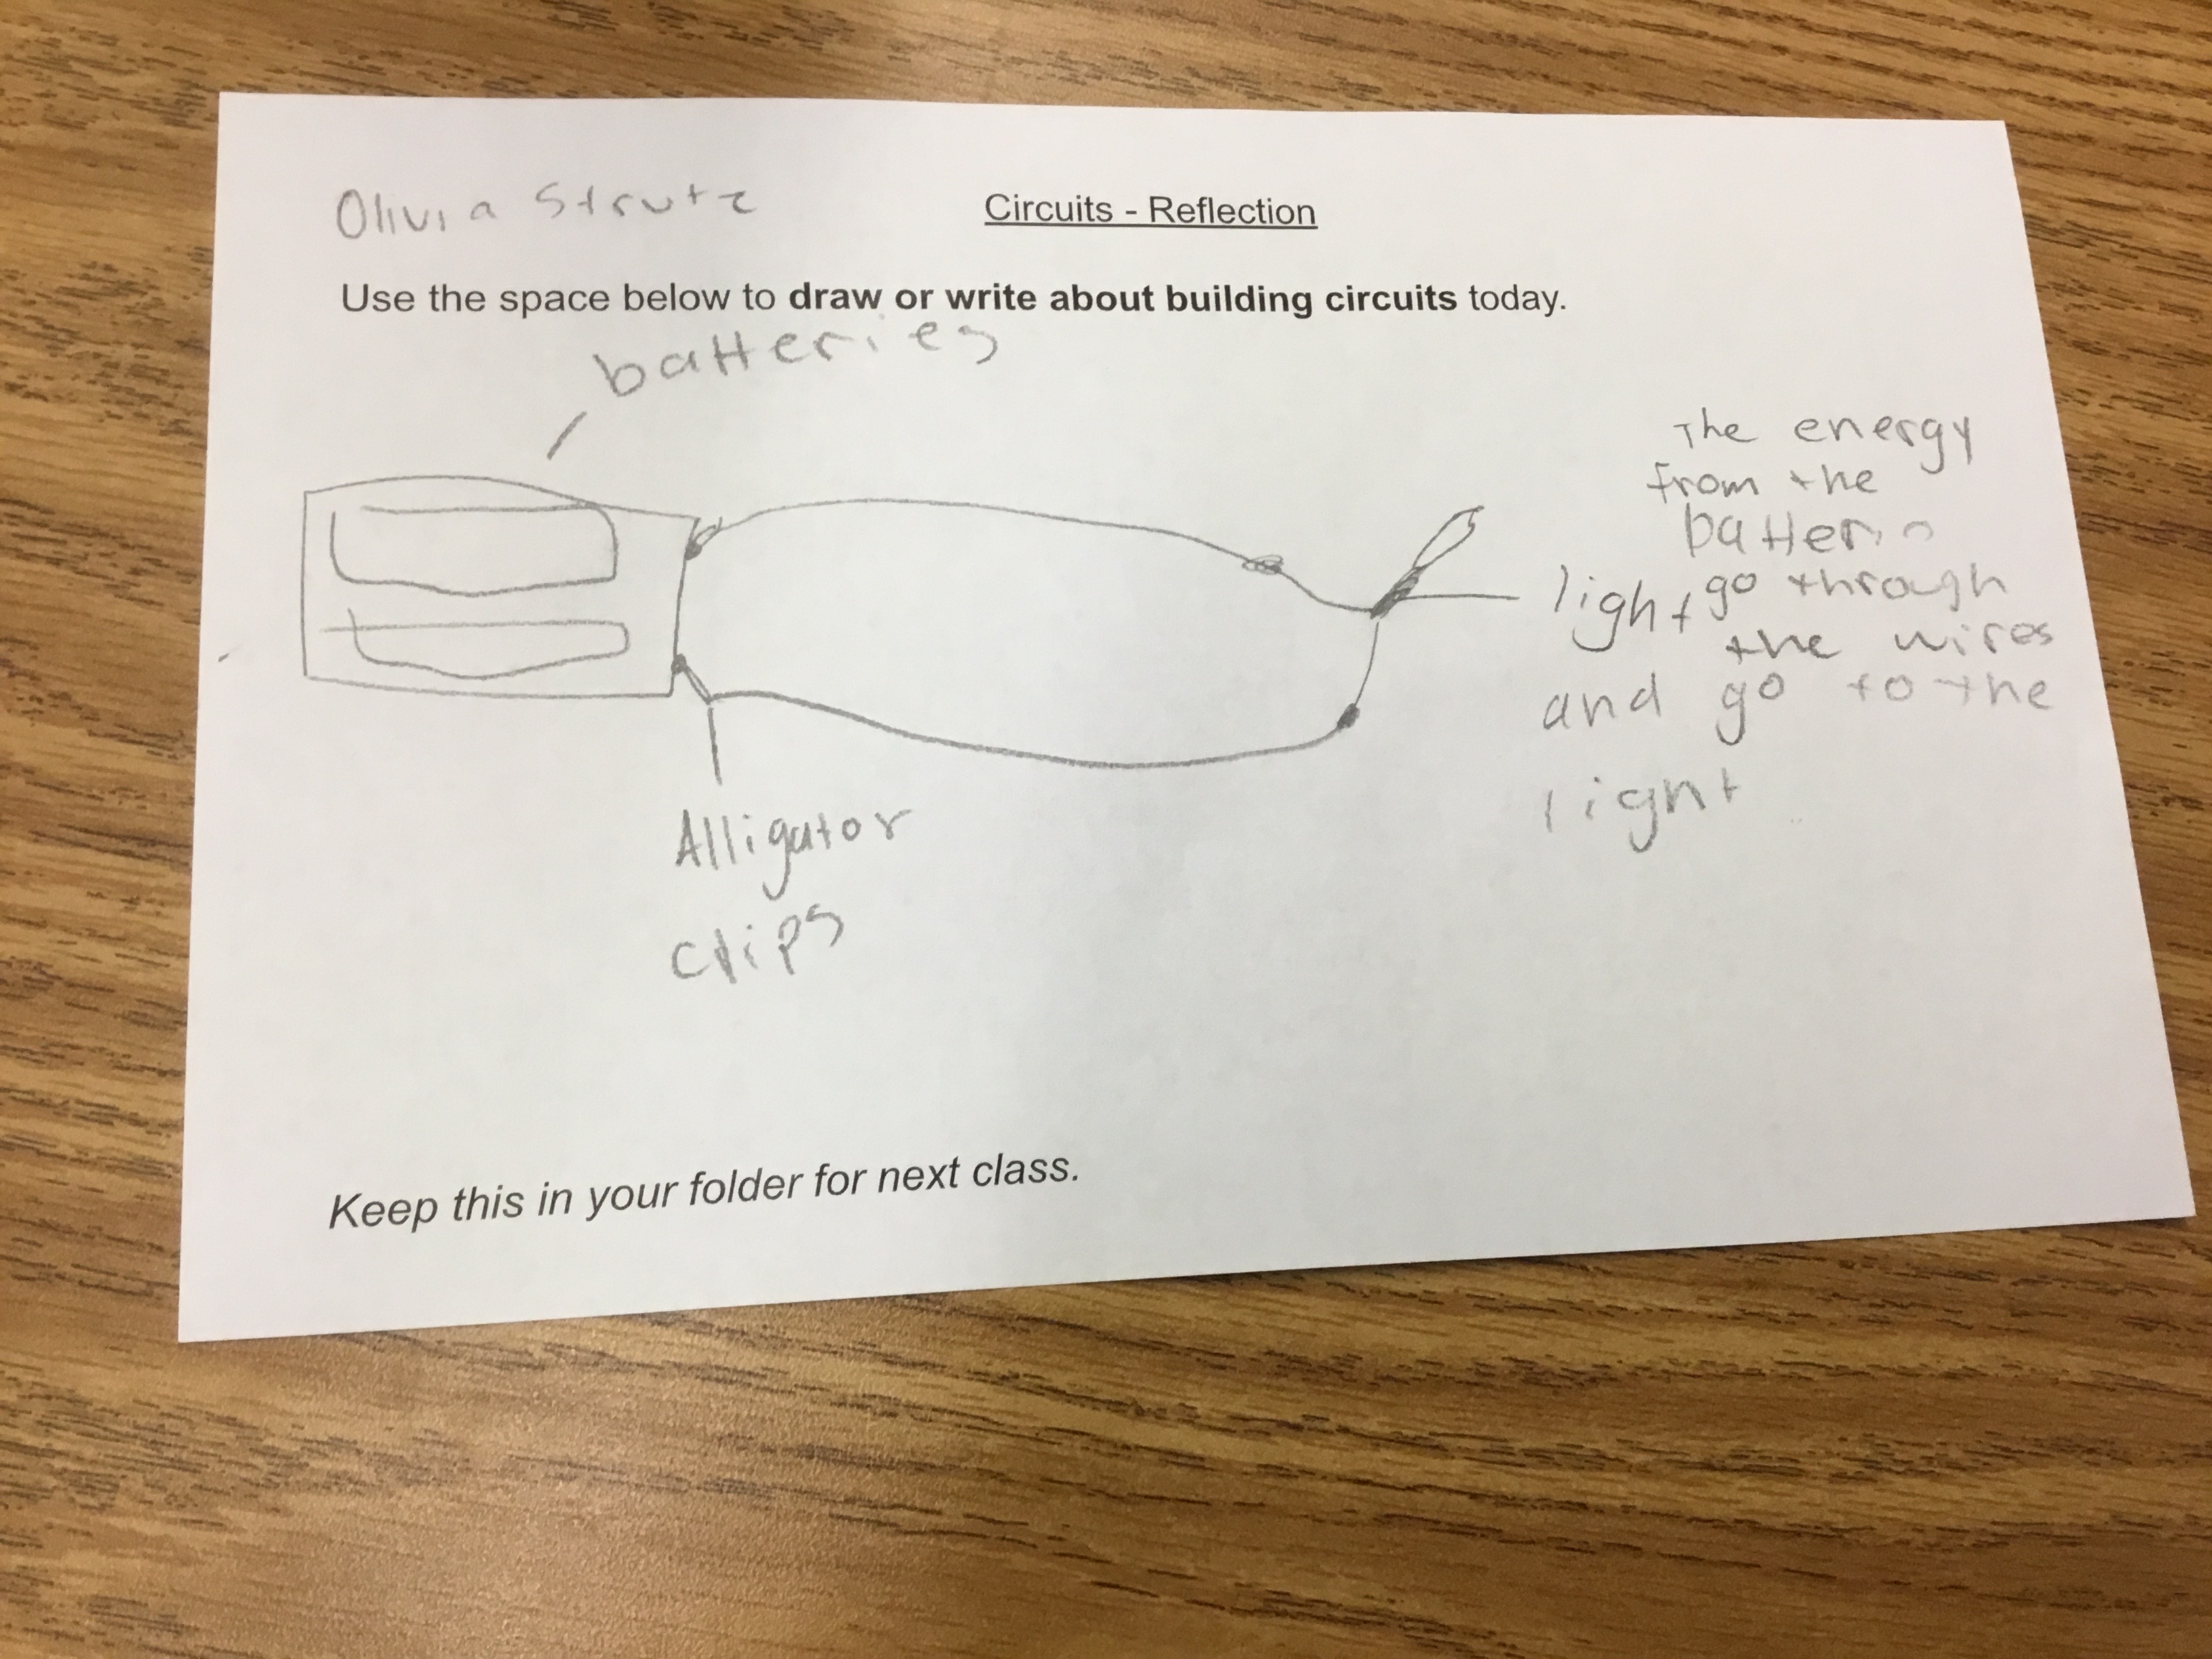 Olivia Strutz
Circuits - Reflection
Use the space below to draw or write about building circuits today.
batteries
The energy
from the
light go through
the wires
and go to the
light
Alligator
clips
Keep this in your folder for next class.